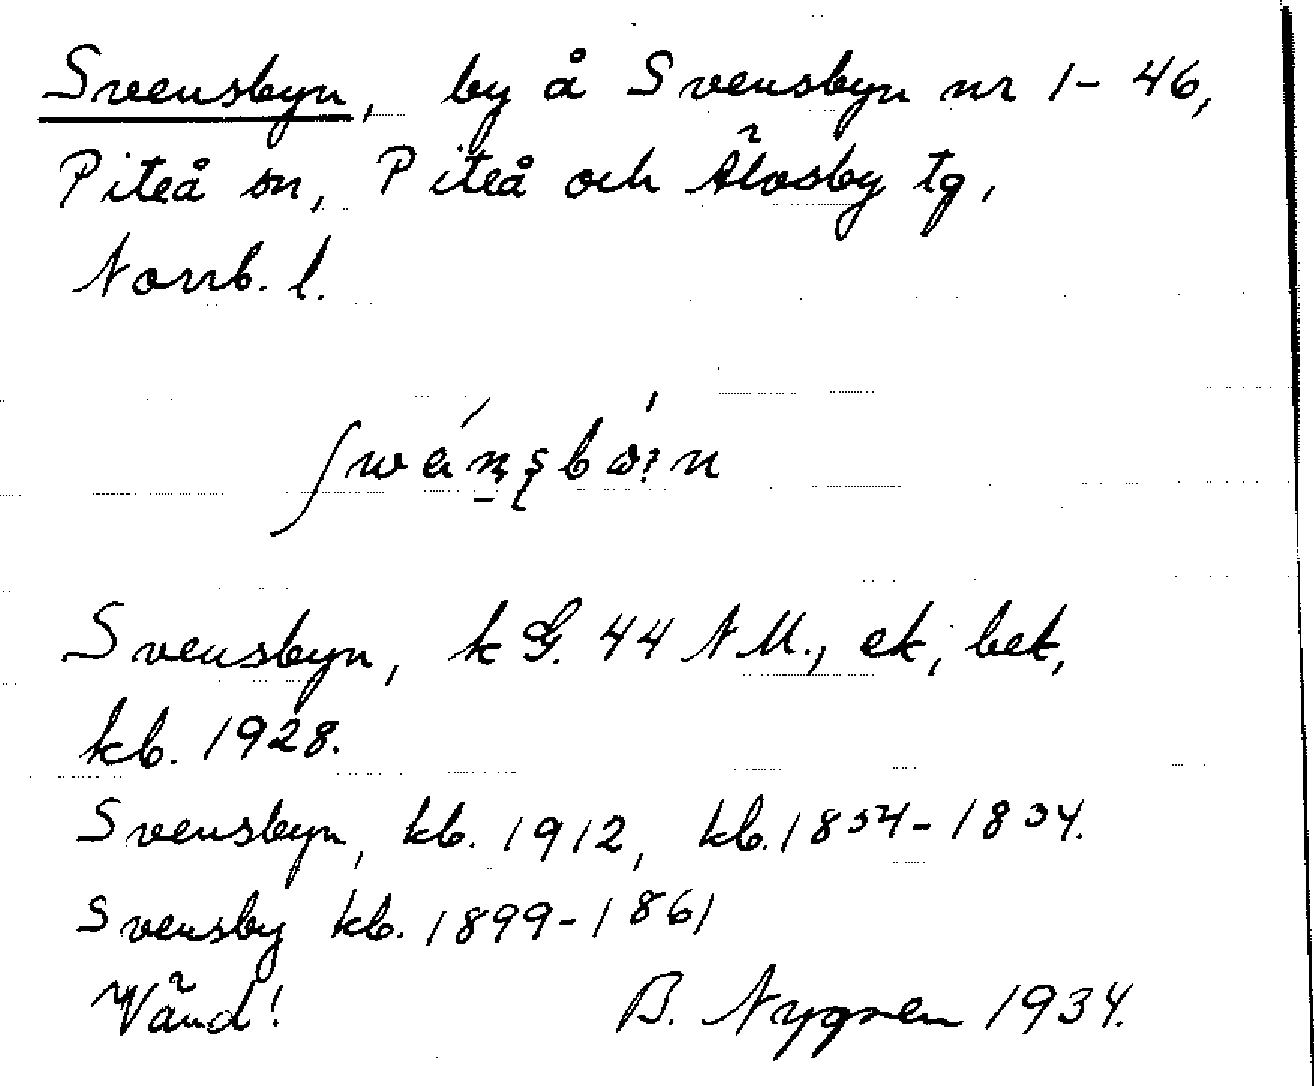 Svensbyn, by å Svensbyn nr 1-46,
Piteå sn, Piteå och Älvsby tg,
Norrb. l.
Svensbyn, k G. 44 NM., ek, bek,
kb. 1928.
Svensbyn, kb. 1912, kb. 1854-1834.
Svensby kb. 1899-1861
Vänd! B. Nygren 1934.